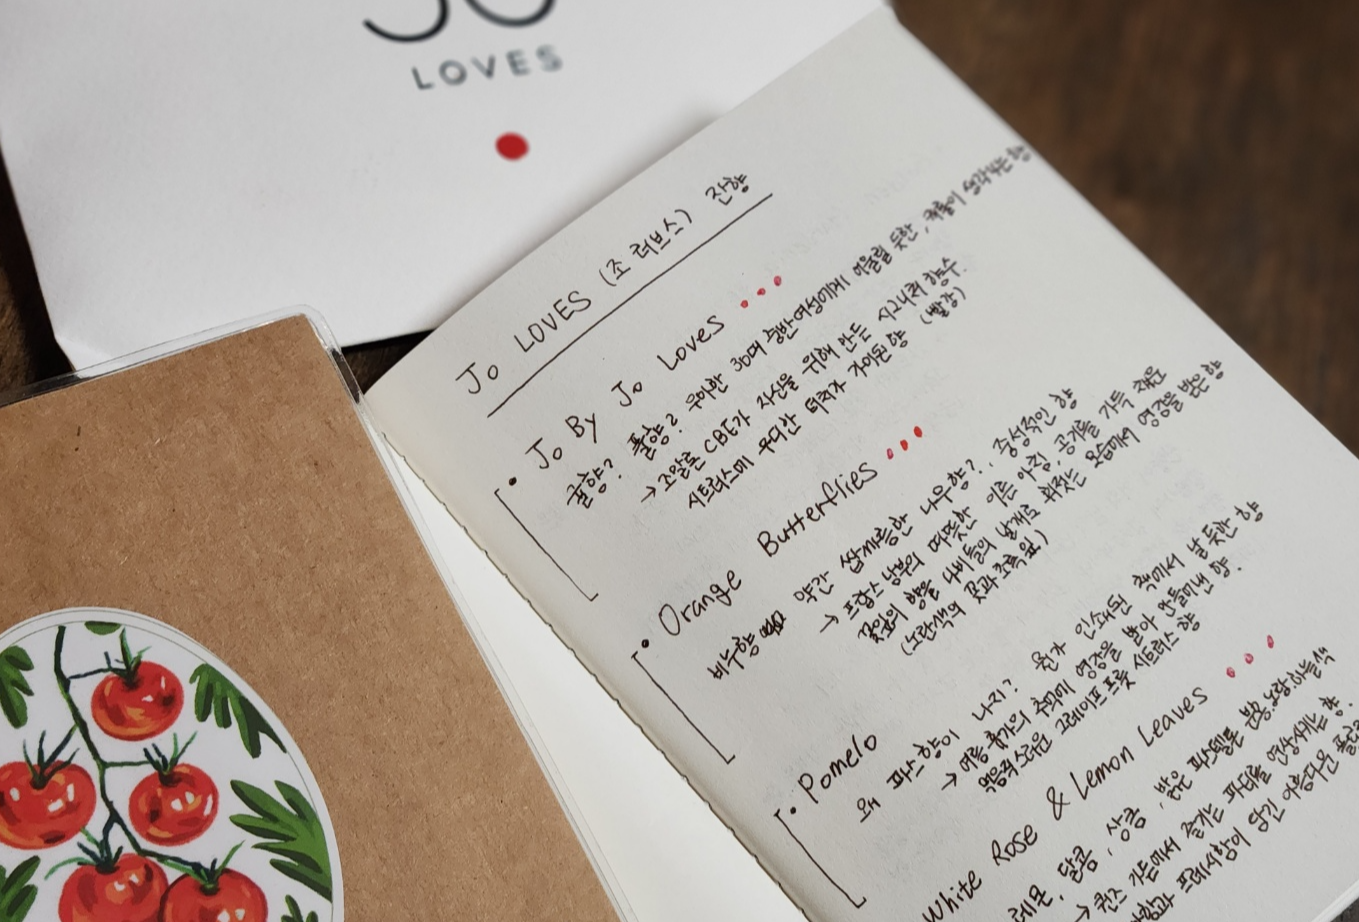 JO
LOVES
Jo LOVES (조 러브스) 잔향
• Jo By Jo Loves
귤향? 풀향? 우아한 30대 중반 여성에게 어울릴 듯한, 생각나는 향
→ 조말론 CBE가 자신을 위해 만든 시그니처 향수.
시트러스에 우디한 터치가 가미된 향 (빨강)
• Orange Butterflies
비누향 약간 쌉싸름한 나무향?, 중성적인 향
→ 프랑스 남부의 따뜻한 이른 아침, 공기를 가득 채운
꽃잎의 향을 나비들의 날개로 휘젓는 모습에서 영감을 받은 향
(노란색의 꽃과 초록 잎)
• Pomelo
왜 파스향이 나지? 뭔가 인쇄된 책에서 날 듯한 향
→ 여름 휴가의 추억에 영감을 받아 만들어낸 향.
먹음직스러운 그레이프 프룻 시트러스 향
White Rose & Lemon Leaves
레몬, 달콤, 상큼, 밝은 파스텔톤 분홍.노랑.하늘색
→ 퀸즈 가든에서 즐기는 파티를 연상시키는 향.
프레시함이 담긴 아름다운